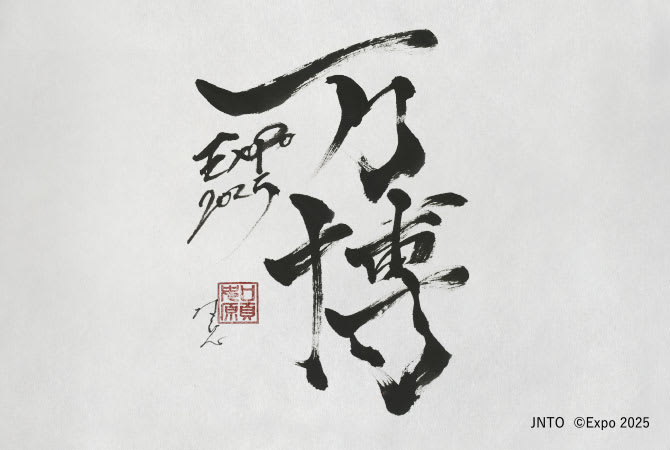 万博
Expo
2025
JNTO ©Expo 2025